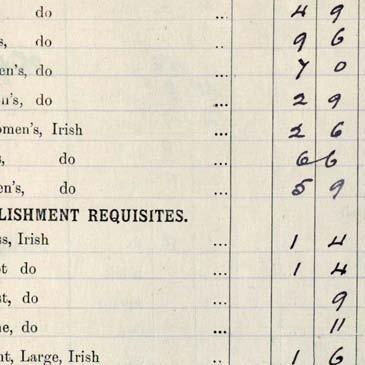 do ... 4 9
s, do .. 9 6
en's, do 7 0
n's, do ... 2 9
omen's, Irish ... 2 6
s, do ... 6 6
en's, do ... 5 9
LISHMENT REQUISITES.
ss, Irish ... 1 4
t do ... 1 4
st, do ... 9
ne, do ... 11
nt, Large, Irish .. 1 6